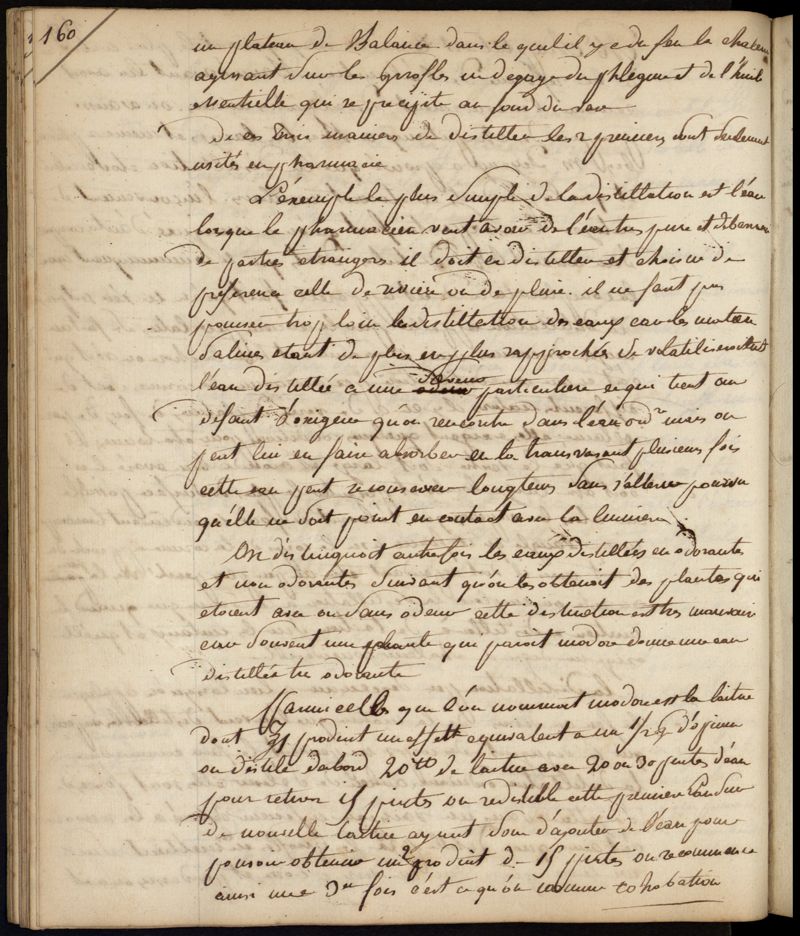 160
un plateau de Balance dans le quel il y a du feu la chaleur
agissant sur les gyrofles en degage du phlegme et de l'huile
essentielle qui se precipite au fond du vase
De ces trois manieres de distiller les 2 premieres sont seulement
usités en pharmacie
L'exemple le plus simple de la distillation est l'eau
lorsque le pharmacien veut avoir de l'eau tres pure et debarrassée
de parties etrangeres il doit en distiller et choisir de
preference celle de riviere ou de pluie. il ne faut pas
pousser trop loin la distillation des eaux car les matieres
salines etant de plus en plus rapprochées se volatiliseroient
l'eau distillée a une saveur particuliere ce qui tient au
defaut d'oxigene qu'on rencontre dans l'eau ord.re mais on
peut lui en faire absorber en la transvasant plusieurs fois
cette eau peut se conserver longtems sans s'alterer pourvu
qu'elle ne soit point en contact avec la lumiere
On distinguoit autrefois les eaux distillées en odorantes
et non odorantes suivant qu'on les obtenoit des plantes qui
etoient avec ou sans odeur cette distinction est tres mauvaise
car souvent une plante qui paroit inodore donne une eau
distillée tres odorante
Parmi celles que l'on nommoit inodore est la laitue
dont ℥j produit un effet equivalent a un 1/2 g d'opium
on distile d'abord 20 lb de laitue avec 20 ou 30 pintes d'eau
pour retirer 15 pintes on redistille cette premiere Eau sur
de nouvelle laitue ayant soin d'ajouter de l'eau pour
pouvoir obtenir un 2e produit de 15 pintes on recommence
ainsi une 3me fois c'est ce qu'on nomme cohobation